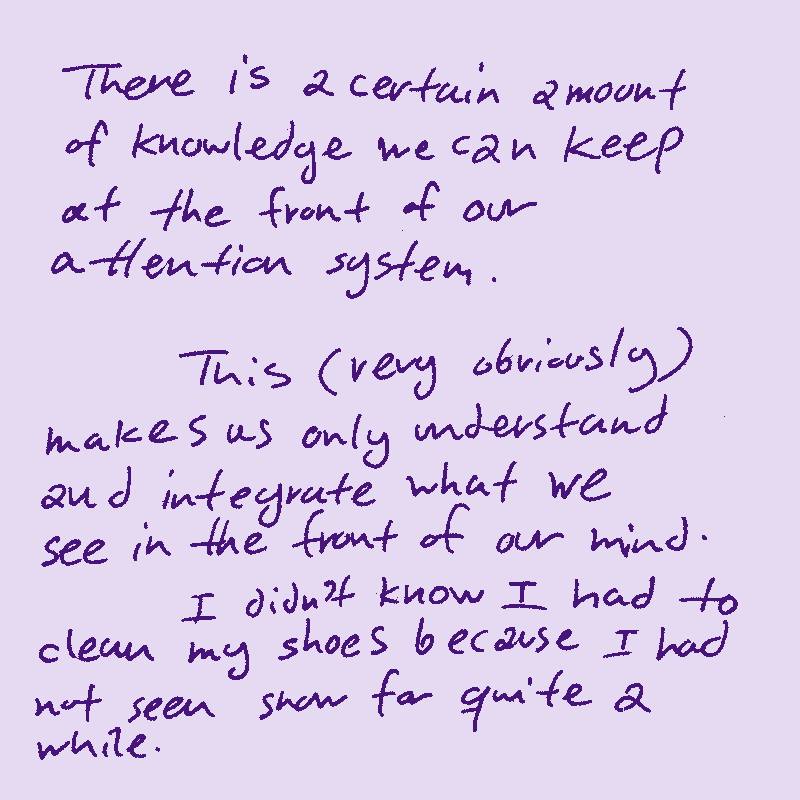 There is a certain amount
of knowledge we can keep
at the front of our
attention system.
This (very obviously)
makes us only understand
and integrate what we
see in the front of our mind.
I didn't know I had to
clean my shoes because I had
not seen snow for quite a
while.